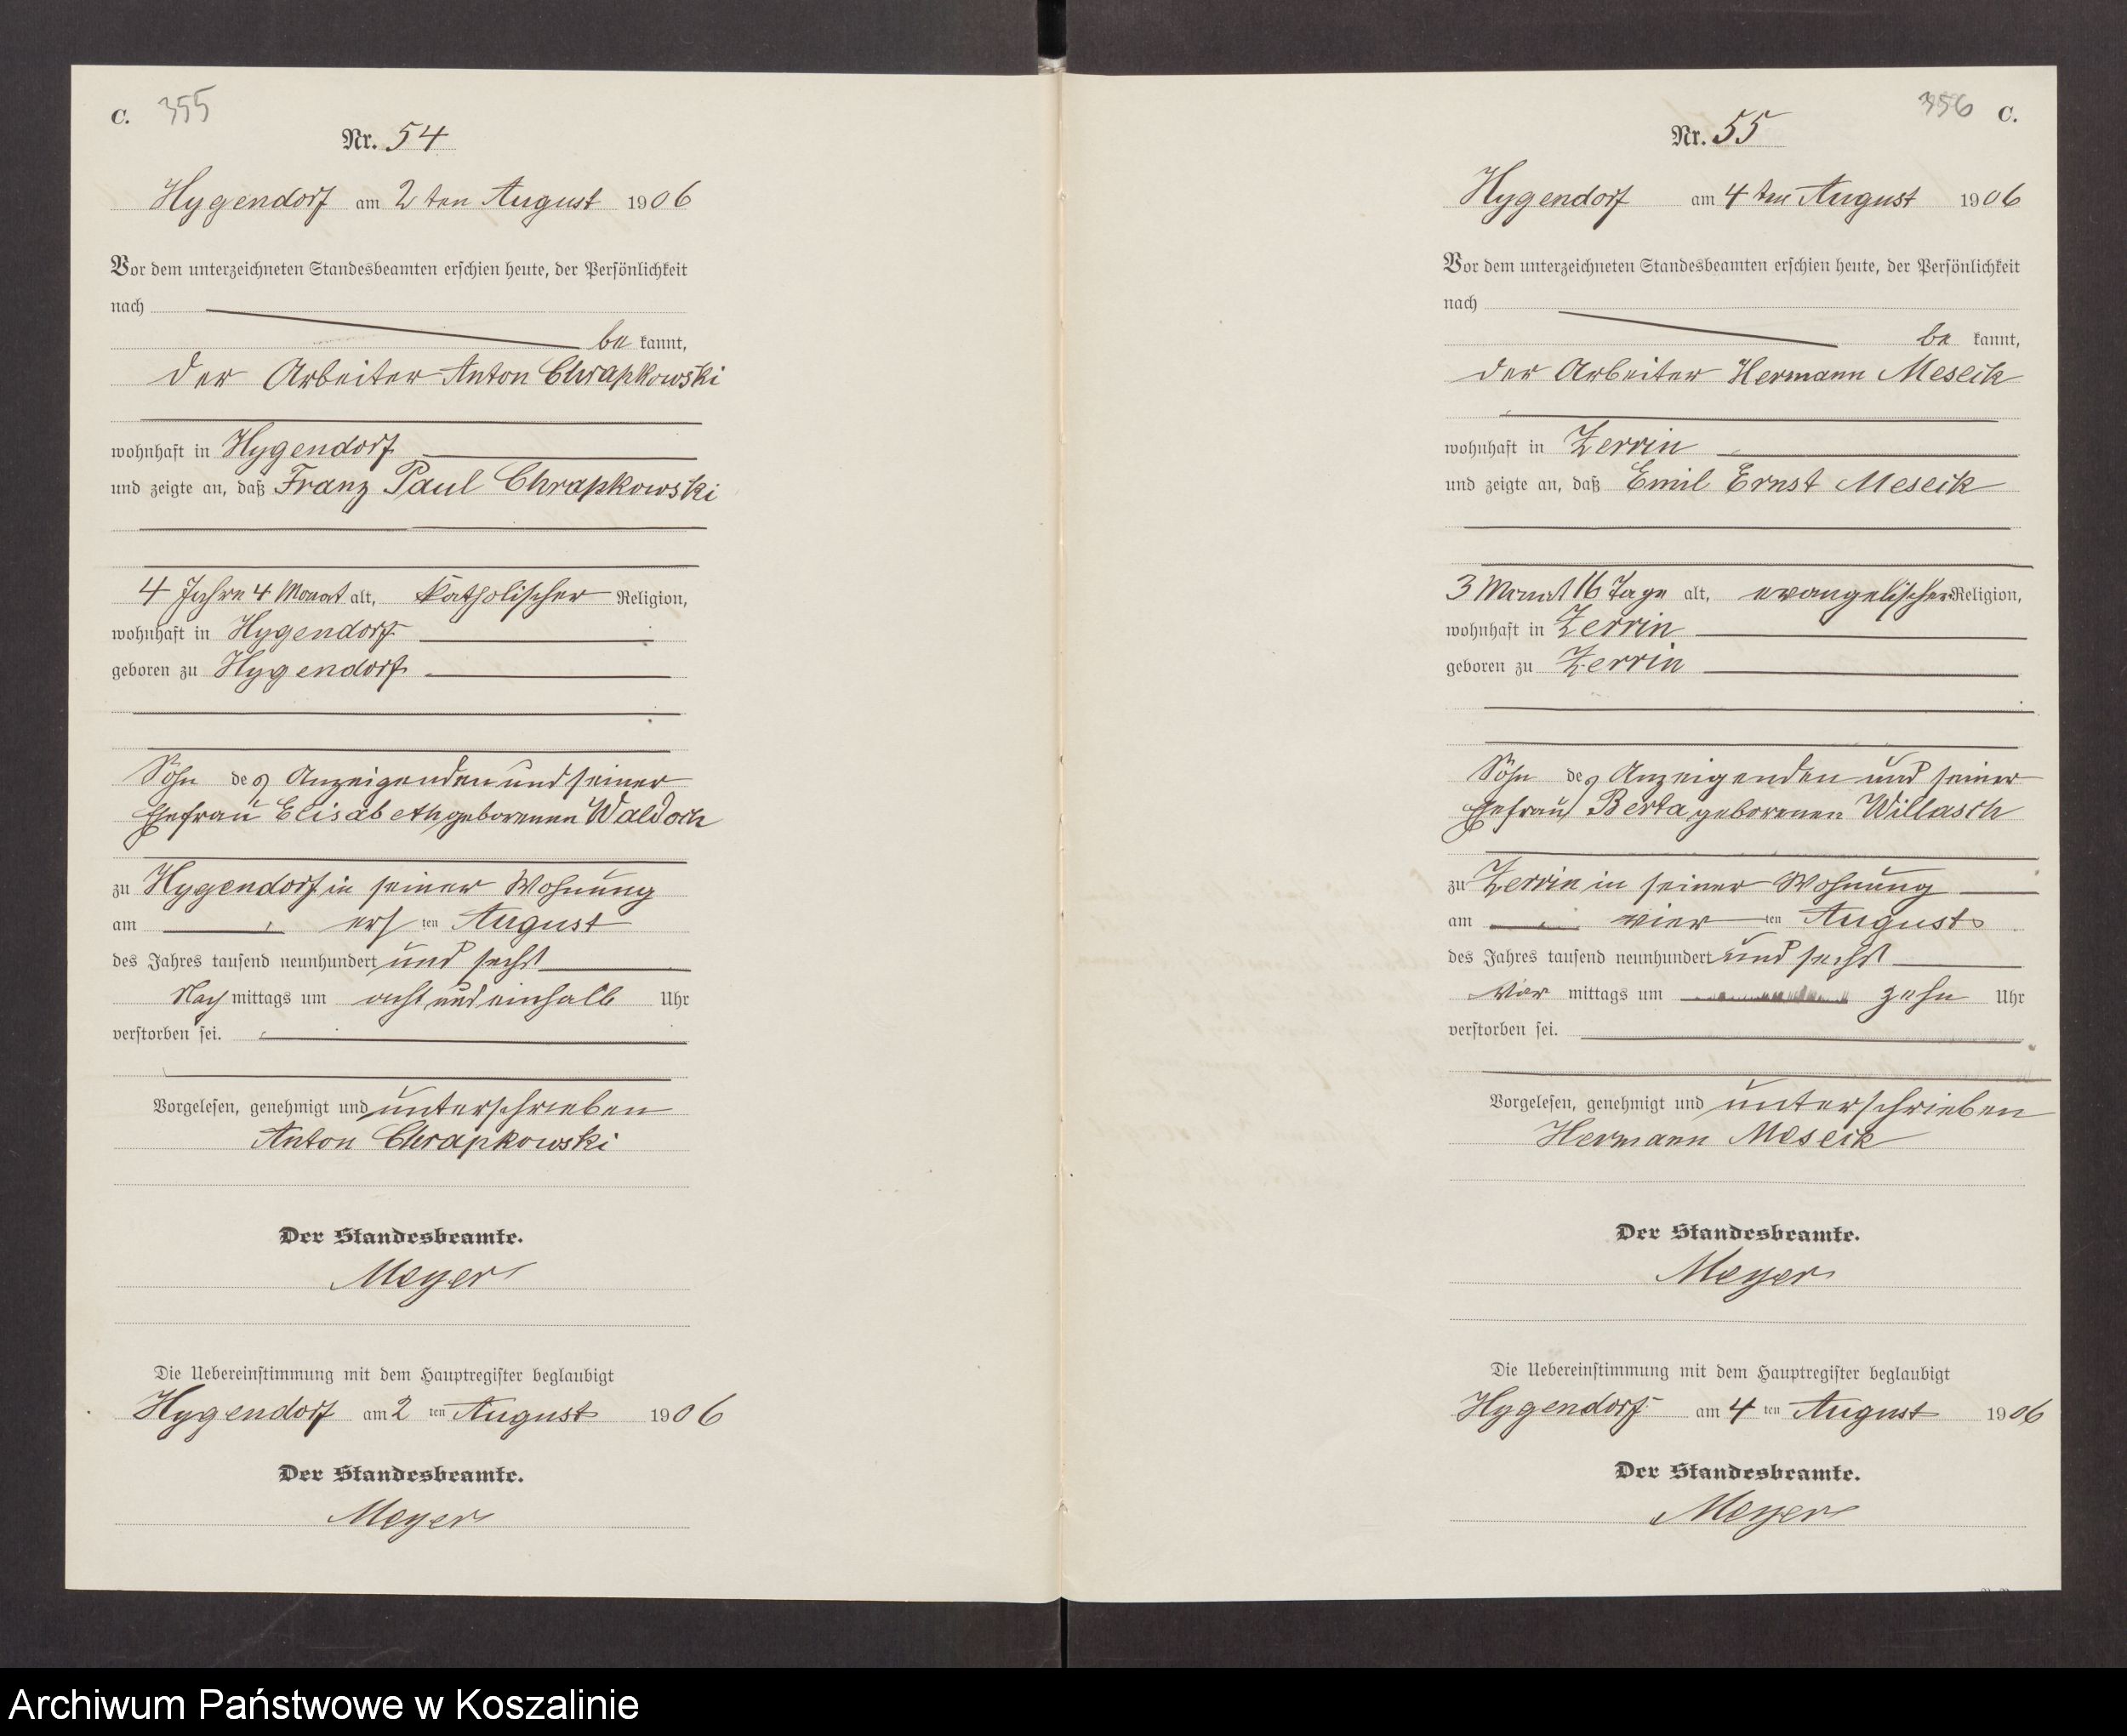 C. 355
Nr. 54
Hygendorf am 2 ten August 1906
Vor dem unterzeichneten Standesbeamten erschien heute, der Persönlichkeit
nach
be kannt,
der Arbeiter Anton Chrapkowski
wohnhaft in Hygendorf
und zeigte an, daß Franz Paul Chrapkowski
4 Jahre 4 Monat alt, katholischer Religion,
wohnhaft in Hygendorf
geboren zu Hygendorf
Sohn des Anzeigenden und seiner
Ehefrau Elisabeth geborenen Waldoch
zu Hygendorf in seiner Wohnung
am ersten August
des Jahres tausend neunhundert und sechs
Nach mittags um acht und einhalb Uhr
verstorben sei.
Vorgelesen, genehmigt und unterschrieben
Anton Chrapkowski
Der Standesbeamte.
Meyer
Die Uebereinstimmung mit dem Hauptregister beglaubigt
Hygendorf am 2 ten August 1906
Der Standesbeamte.
Meyer
356 C.
Nr. 55
Hygendorf am 4 ten August 1906
Vor dem unterzeichneten Standesbeamten erschien heute, der Persönlichkeit
nach
be kannt,
der Arbeiter Hermann Meseik
wohnhaft in Zerrin
und zeigte an, daß Emil Ernst Meseik
3 Monat 16 Tage alt, evangelischer Religion,
wohnhaft in Zerrin
geboren zu Zerrin
Sohn des Anzeigenden und seiner
Ehefrau Berta geborenen Willasch
zu Zerrin in seiner Wohnung
am vier ten August
des Jahres tausend neunhundert und sechs
Vor mittags um zehn Uhr
verstorben sei.
Vorgelesen, genehmigt und unterschrieben
Hermann Meseik
Der Standesbeamte.
Meyer
Die Uebereinstimmung mit dem Hauptregister beglaubigt
Hygendorf am 4 ten August 1906
Der Standesbeamte.
Meyer
Archiwum Państwowe w Koszalinie